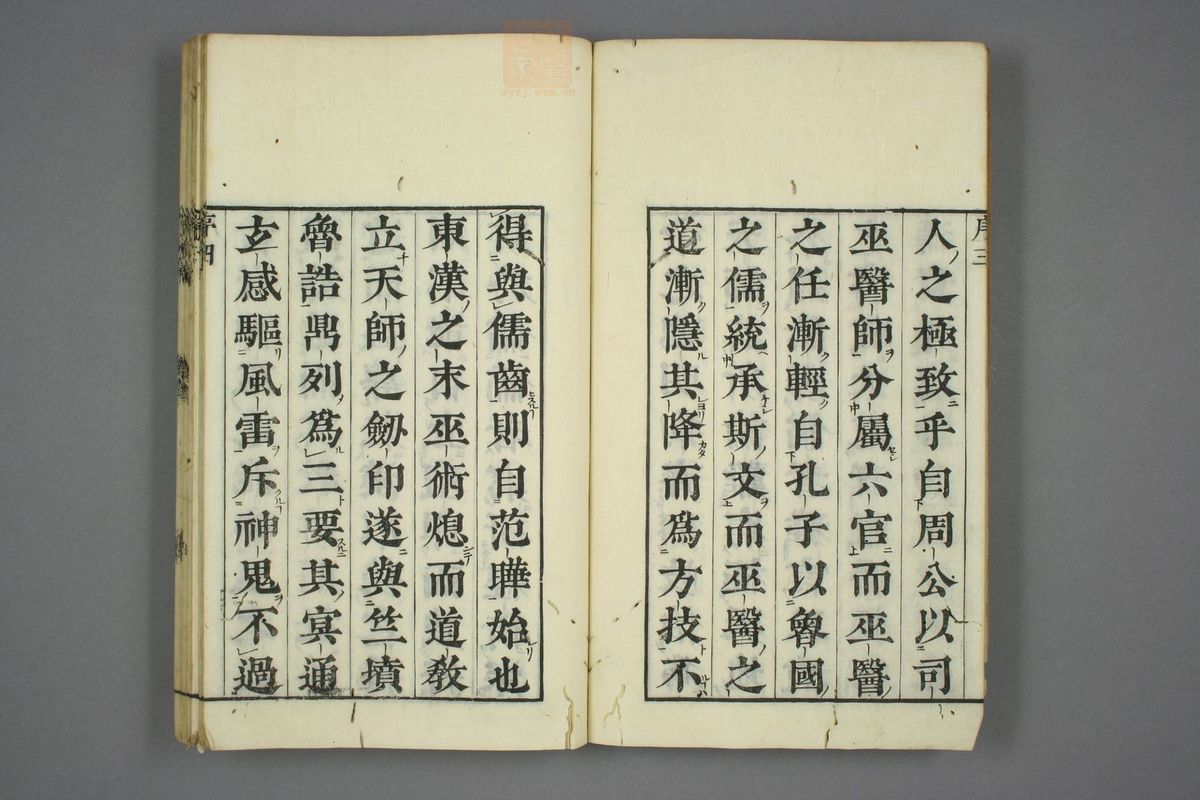 序三
人之極致乎自周公以司
巫醫師分屬六官而巫醫
之任漸輕自孔子以魯國
之儒統承斯文而巫醫之
道漸隱其降而爲方技不
得與儒齒則自范曄始也
東漢之末巫術熄而道教
立天師之劒印遂與竺墳
魯誥鼎列爲三要其冥通
玄感驅風雷斥神鬼不過
序四
zysj.com.cn